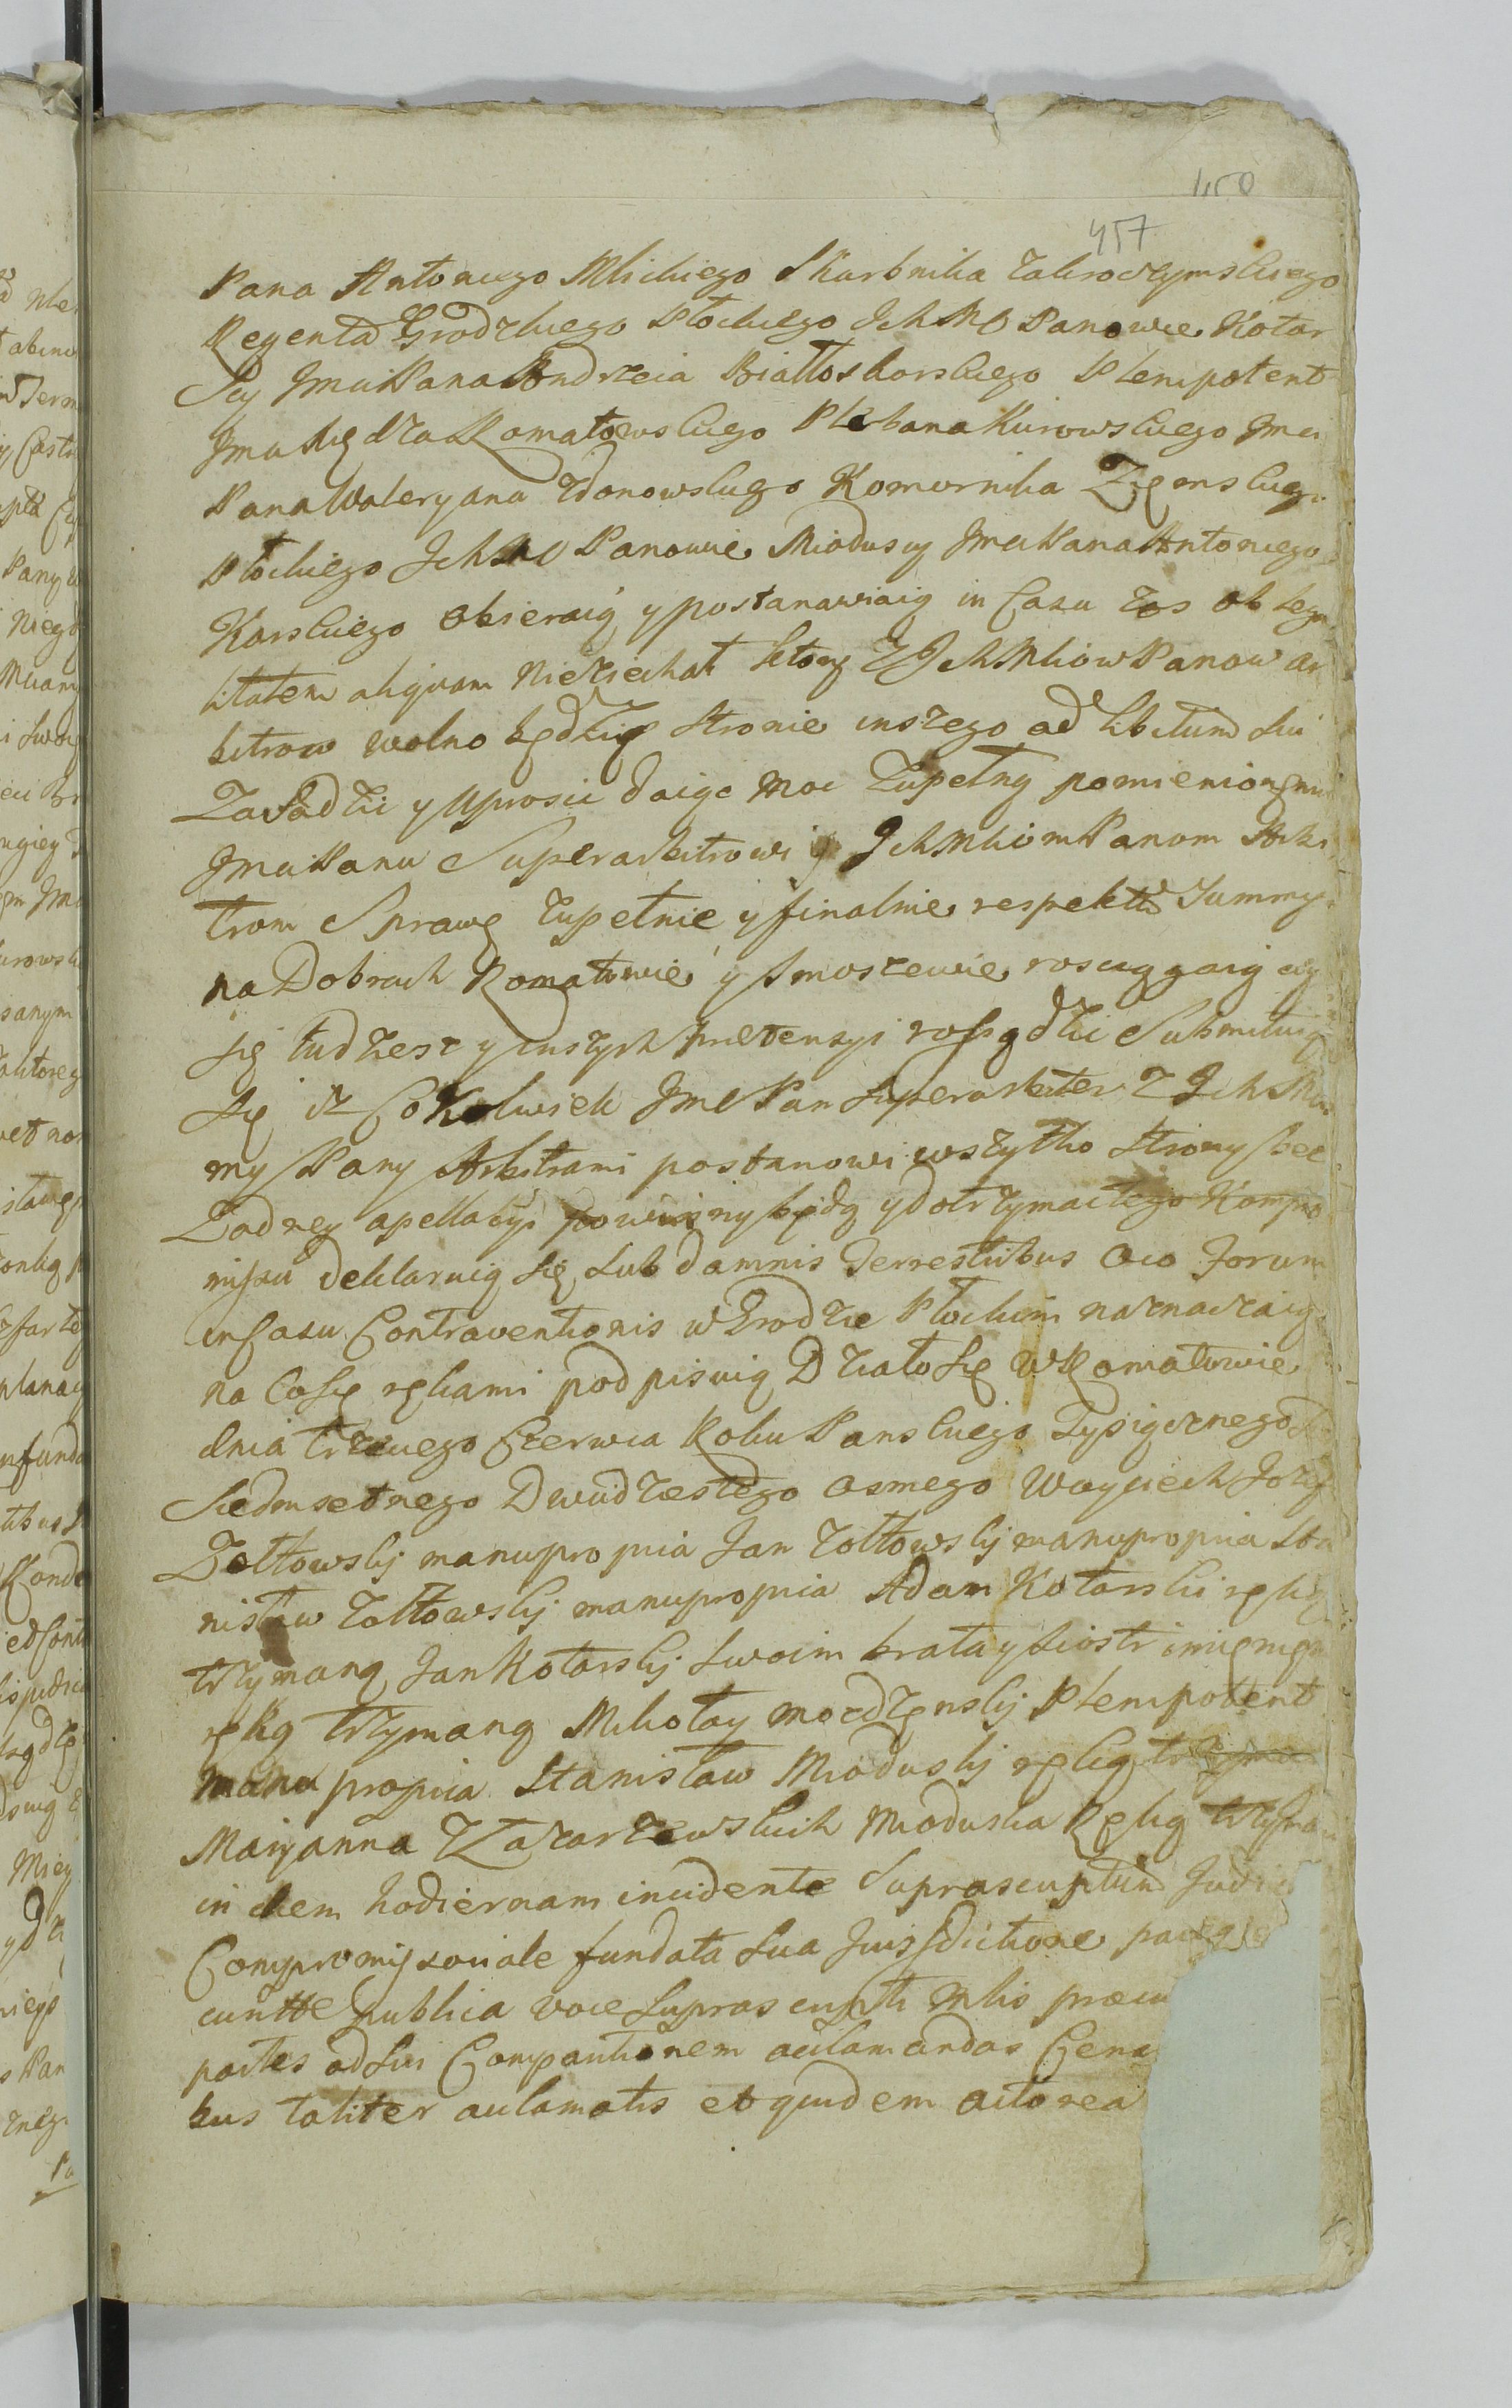 450
457
Pana Antoniego Mlickiego Skarbnika Zakroczymskiego
Regenta Grodzkiego Płockiego Ich MO Panowie Kotar
scy Jmci Pana Andrzeia Białłoskorskiego Plenipotent
Jmci Xiędza Romatowskiego Plebana Kurowskiego Jmci
Pana Waleryana Zdonowskiego Komornika Ziemskieg
Płockiego Ich MO Panowie Mioduscy Jmci Pana Antoniego
Karskiego obieraią y postanawiaią in Casu zas ob lega
litatem aliquam nieziechał ktory z Ich Mciow Panow Ar
bitrow wolno będzie stronie inszego ad libitum sui
Zasadzić y Uprosić daiąc moc Zupełny pomienionemu
Jmci Panu Superarbitrowi y Ich Mciom Panom Arbi
trom Sprawę zupełnie y finalnie respektu Summy
na Dobrach Romatowie y Smoszewie rosciągaiącey
się tudziesz y inszych pretensyi rossądzić Submituią
się iż Cokolwiek Jmc Pan Superarbiter z Ich Mc
my Pany Arbitrami postanowi wszytko strony bez
Zadney apellacyi powinny będą y dotrzymać tego Kompro
missu deklaruią się sub damnis Terrestribus Oco Forum
in Casu Contraventionis w Grodzie Płockim naznaczaią
na Co się rękami podpisuią Działo się w Romatowie
dnia trzeciego Czerwca Roku Panskiego Tysiącznego
Siedmsetnego Dwudziestego osmego Woyciech Jozef
Zołtowskj manupropria Jan Zołtowskj manupropria Sta
nisław Zołtowskj manupropria Adam Kotarski ręką
trzymaną Jan Kotarskj swoim brata y siostr imieniem
ręką trzymaną Mikołay Modzenskj Plenipotent
manu propria Stanisław Mioduskj ręką trzyma
Maryanna Z Kazarzewskich Mioduska Ręką trzyma
in diem hodiernam incidente Suprascriptum Judi
Compromissoriale fundata sua Jurisdictione
publica voce Suprascripti mlis
partes ad sui Comparitionem acclamandas
bus taliter acclamatis et quidem actorea